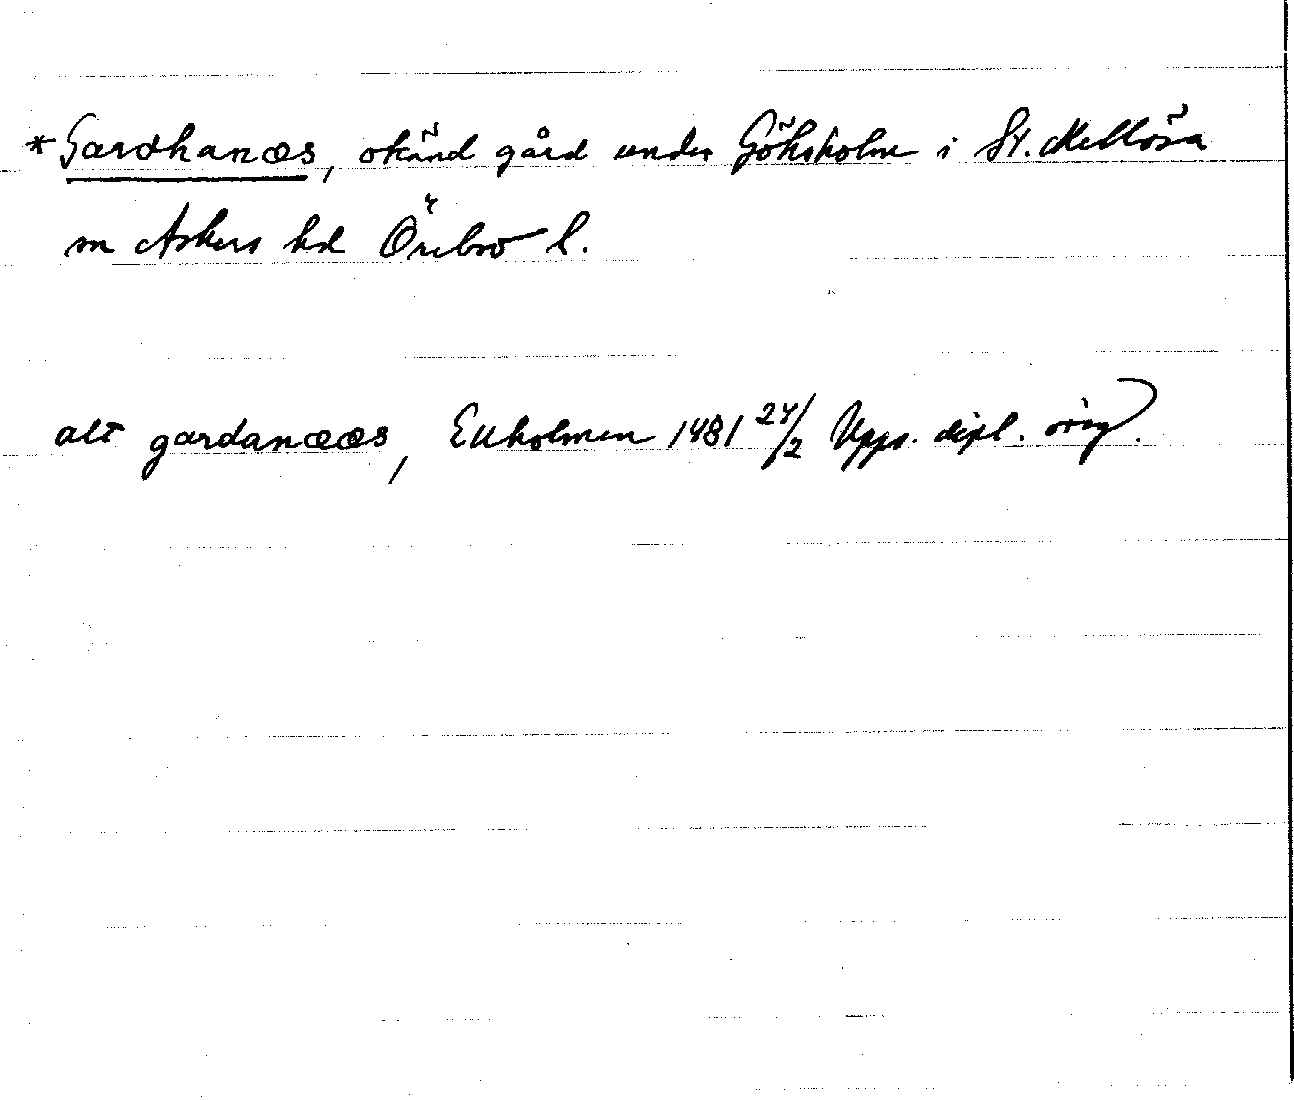 *Gardhanæs, okänd gård under Göksholm i St. Mellösa
sn Askers hd Örebro l.
alt gardanææs, Ekholmen 1481 24/2 Upps. dipl. orig.